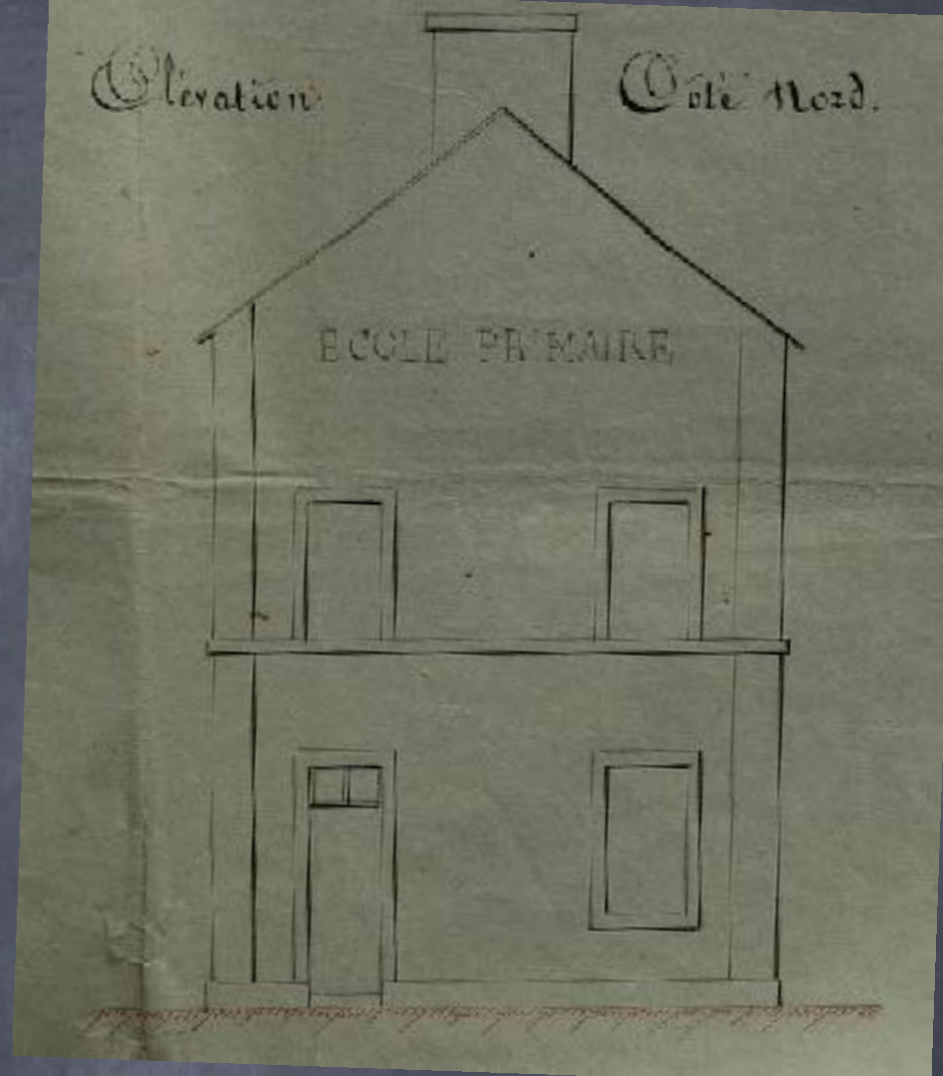 Elévation Côté Nord.
ECOLE PRIMAIRE